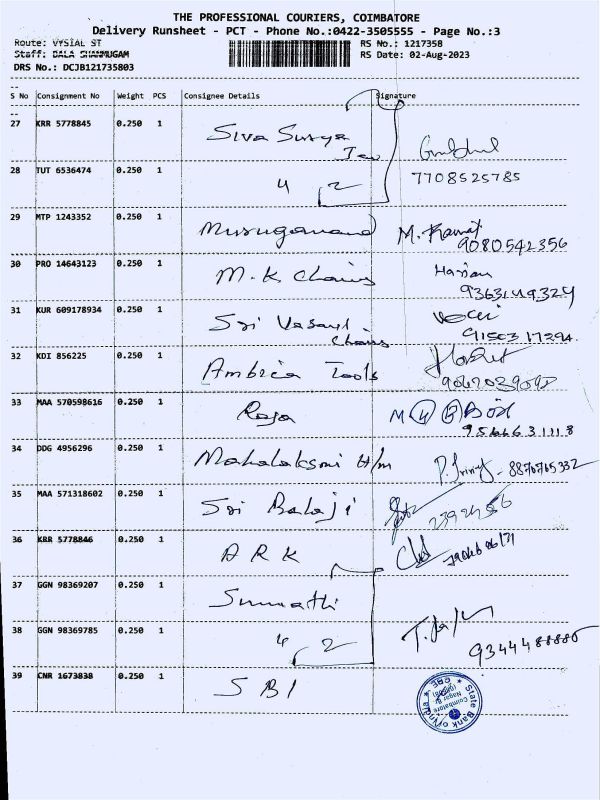 THE PROFESSIONAL COURIERS, COIMBATORE
Delivery Runsheet - PCT - Phone No.:0422-3505555 - Page No.:3
Route: VYSIAL ST RS No.: 1217358
Staff: BALA SHANMUGAM RS Date: 02-Aug-2023
DRS No.: DCJB121735803
S No Consignment No Weight PCS Consignee Details Signature
27 KRR 5778845 0.250 1 Siva Surya
28 TUT 6536474 0.250 1 4 2 7708525785
29 MTP 1243352 0.250 1 Muruganand M. Kamat
9080542356
30 PRO 14643123 0.250 1 M.K Chains
31 KUR 609178934 0.250 1 Sri Vasavi
Chains
32 KDI 856225 0.250 1 Ambica Tools
33 MAA 570598616 0.250 1 Raja
34 DDG 4956296 0.250 1 Mahalaksmi H/m
35 MAA 571318602 0.250 1 Sri Balaji
36 KRR 5778846 0.250 1 A R K
37 GGN 98369207 0.250 1 Sumathi
38 GGN 98369785 0.250 1 4 2
39 CNR 1673838 0.250 1 S B I
State Bank of India